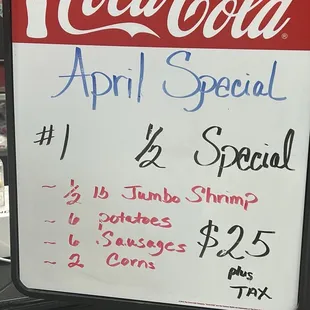 Coca-Cola
April Special
#1 ½ Special
~ ½ lb Jumbo Shrimp
~ 6 potatoes
~ 6 Sausages
~ 2 Corns
$25
plus
TAX